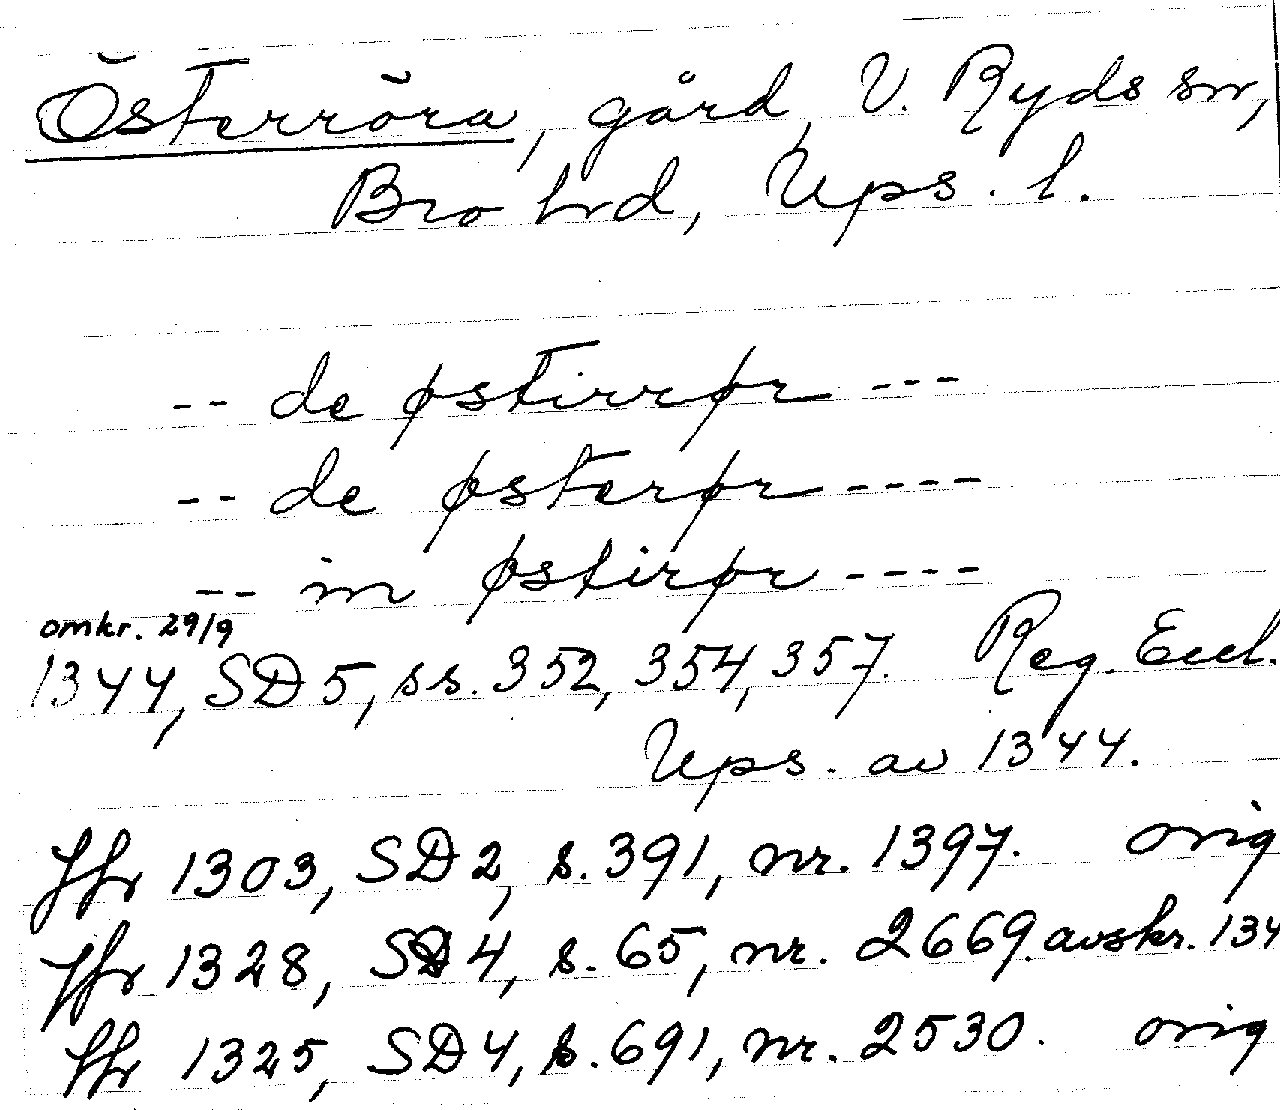 Österröra, gård, V. Ryds sn,
Bro hrd, Ups. l.
-- de østirrør ---
-- de østerør ----
-- in østirør ----
omkr. 29/9
1344, SD 5, ss. 352, 354, 357. Reg. Eccl.
Ups. av 1344.
Jfr 1303, SD 2, s. 391, nr. 1397. orig
Jfr 1328, SD 4, s. 65, nr. 2669. avskr. 134
Jfr 1325, SD 4, s. 691, nr. 2530. orig